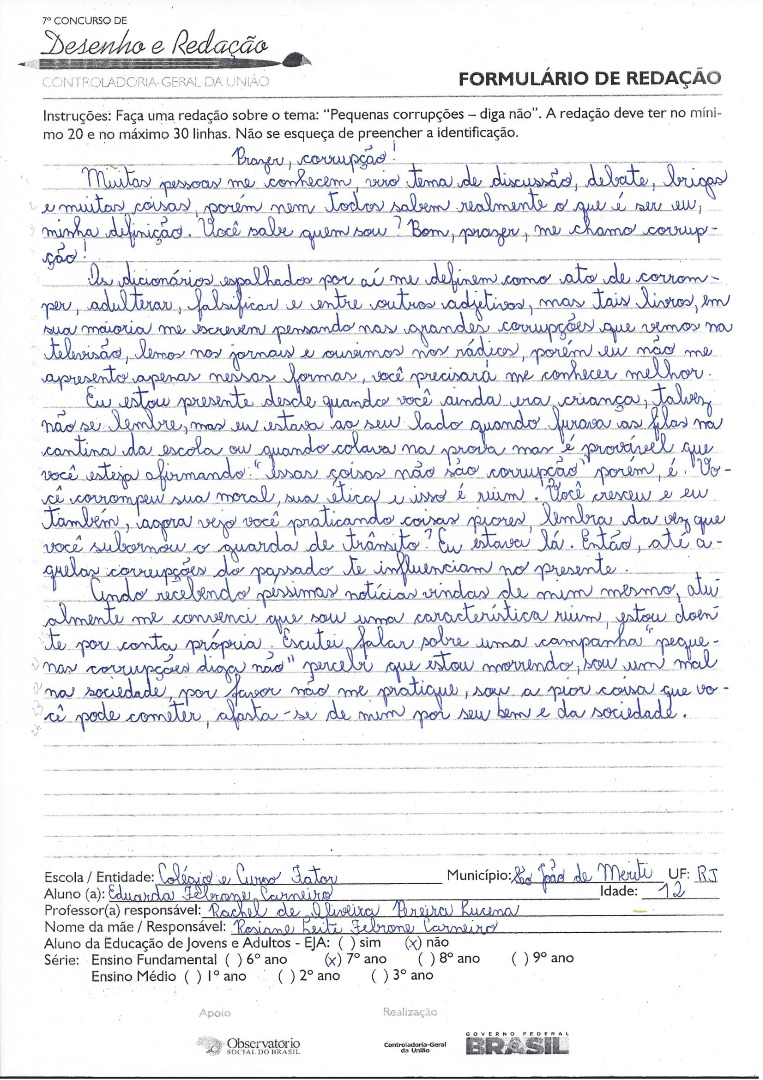 7º CONCURSO DE
Desenho e Redação
CONTROLADORIA-GERAL DA UNIÃO
FORMULÁRIO DE REDAÇÃO
Instruções: Faça uma redação sobre o tema: “Pequenas corrupções – diga não”. A redação deve ter no míni-
mo 20 e no máximo 30 linhas. Não se esqueça de preencher a identificação.
Prazer, corrupção!
Muitas pessoas me conhecem, viro tema de discussão, debate, brigas
e muitas coisas, porém nem todos sabem realmente o que é ser eu,
minha definição. Você sabe quem sou? Bom, prazer, me chamo corrup-
ção!
Os dicionários espalhados por aí me definem como ato de corrom-
per, adulterar, falsificar e entre outros adjetivos, mas tais livros, em
sua maioria me escrevem pensando nas grandes corrupções que vemos na
televisão, lemos nos jornais e ouvimos nos rádios, porém eu não me
apresento apenas nessas formas, você precisará me conhecer melhor.
Eu estou presente desde quando você ainda era criança, talvez
não se lembre, mas eu estava ao seu lado quando furava as filas na
cantina da escola ou quando colava na prova mas é provável que
você esteja afirmando: “Essas coisas não são corrupção” porém, é. Vo-
cê corrompeu sua moral, sua ética e isso é ruim. Você cresceu e eu
também, agora vejo você praticando coisas piores, lembra da vez que
você subornou o guarda de trânsito? Eu estava lá. Então, até a-
quelas corrupções do passado te influenciam no presente.
Ando recebendo pessimas notícias vindas de mim mesmo, atu
almente me convenci que sou uma característica ruim, estou doen
te por conta própria. Escutei falar sobre uma campanha “peque-
nas corrupções diga não” percebi que estou morrendo, sou um mal
na sociedade, por favor não me pratique, sou a pior coisa que vo-
cê pode cometer, afasta-se de mim por seu bem e da sociedade.
Escola / Entidade: Colégio e Curso Fator Município: São João de Meriti UF: RJ
Aluno (a): Eduarda Febrone Carneiro Idade: 12
Professor(a) responsável: Rachel de Oliveira Pereira Lucena
Nome da mãe / Responsável: Rosiane Leite Febrone Carneiro
Aluno da Educação de Jovens e Adultos - EJA: ( ) sim (x) não
Série: Ensino Fundamental ( ) 6º ano (x) 7º ano ( ) 8º ano ( ) 9º ano
Ensino Médio ( ) 1º ano ( ) 2º ano ( ) 3º ano
Apoio Realização
Observatório
SOCIAL DO BRASIL
Controladoria-Geral
da União
GOVERNO FEDERAL
BRASIL